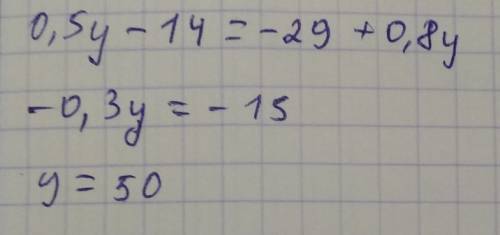 0,5y - 14 = -29 + 0,8y
-0,3y = - 15
y = 50